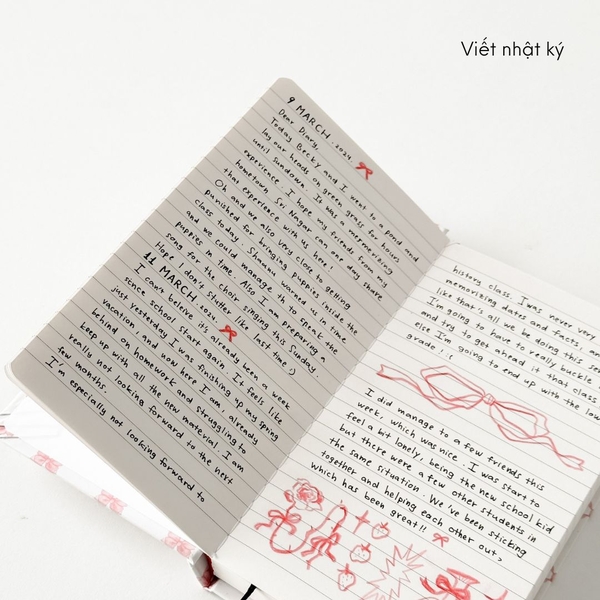 Viết nhật ký
9 MARCH. 2024.
Dear Diary,
Today Becky and I went to a pond and
lay our heads on green grass for hours
until sundown. It was a memmerizing
experience. I hope my friends from my
hometown, Sri Nagar can one day share
that experience with us here!
Oh and we also very close to getting
punished for bringing puppies inside the
class today. Shaanu warned us in time
and we could manage tho sneak the
puppies in time. Also I am preparing a
song for the choir singing this Sunday.
Hope I don't stutter like last time :)
11 MARCH 2024.
I can't belive it's already been a week
since school start again. It feels like
just yesterday I was finishing up my spring
vacation and now here I am, already
behind on homework and struggling to
keep up with all the new material. I am
really not looking forward to the next
few months.
I'm especially not looking forward to
history class. I was never very
memorizing dates and facts, an
like that's all we be doing this se
I'm going to have to really buckle
and try to get ahead it that class
else I'm going to end up with the low
grade!!
I did manage to a few friends this
week, which was nice. I was start to
feel a bit lonely, being the new school kid
but there were a few other students in
the same situation. We've been sticking
together and helping each other out,
which has been great!!